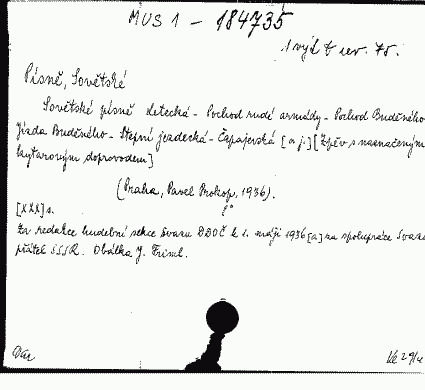 MUS 1 - 184735
Písně, Sovětské
Sovětské písně letecká - Pochod rudé armády - Pochod Buděného
Jízda Buděného - Stepní jezdecká - Čapajevská [a j.] [Zpěv s naznačeným
kytarovým doprovodem]
(Praha, Pavel Prokop, 1936).
8°
[XXX] s.
Za redakce hudební sekce Svazu DDOČ k 1. máji 1936 [a] za spolupráce Svazu
přátel SSSR. Obálka J. Friml.